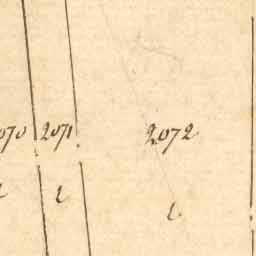 070 2071 2072
l l l